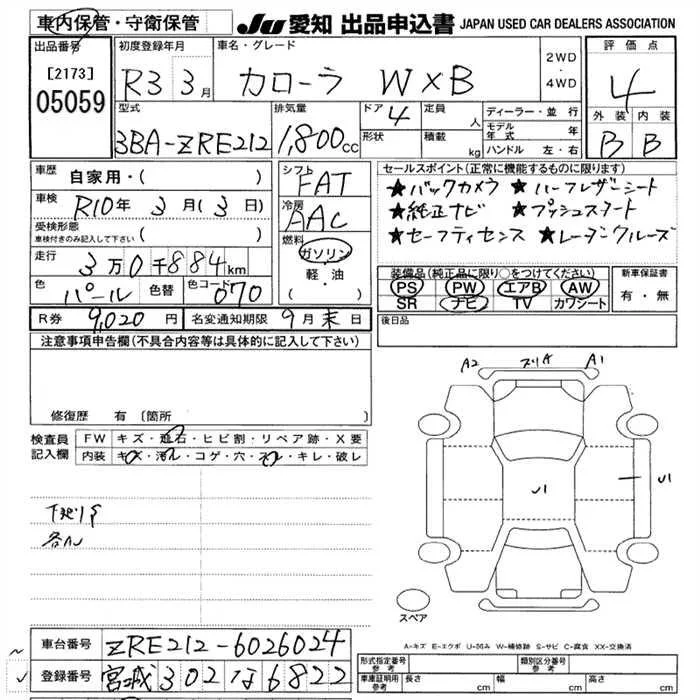 車内保管・守衛保管 JU 愛知 出品申込書 JAPAN USED CAR DEALERS ASSOCIATION
出品番号 初度登録年月 車名・グレード 評価点
[2173] R3 3月 カローラ W×B 2WD 4
05059 4WD
型式 排気量 ドア 4 定員 人 ディーラー・並行 外装 内装
3BA-ZRE212 1,800cc 形状 積載 kg モデル年式 年 B B
ハンドル 左・右
車歴 自家用・( ) シフト FAT セールスポイント(正常に機能するものに限ります)
車検 R10年 3月(3日) 冷房 AAC ★バックカメラ ★ハーフレザーシート
受検形態 ★純正ナビ ★プッシュスタート
車検付きのみ記入して下さい ( ) 燃料 ガソリン ★セーフティセンス ★レーダークルーズ
走行 3万0千884km 軽・油 装備品(純正品に限り○をつけてください) 新車保証書
色 パール 色替 色コード 070 ( ) PS PW エアB AW 有・無
SR ナビ TV カワシート
R券 9,020円 名変通知期限 9月末日 後日品
注意事項申告欄(不具合内容等は具体的に記入して下さい)
A2 スリK A1
修復歴 有 [箇所
検査員記入欄 FW キズ・飛石・ヒビ割・リペア跡・X要
内装 キズ・汚レ・コゲ・穴・スレ・キレ・破レ
U1 U1
スペア
A-キズ E-エクボ U-凹み W-補修跡 S-サビ C-腐食 XX-交換済
車台番号 ZRE212-6026024 形式指定番号 参考 類別区分番号 参考
登録番号 宮城302な6822 車庫証明用 参考 長さ cm 幅 cm 高さ cm